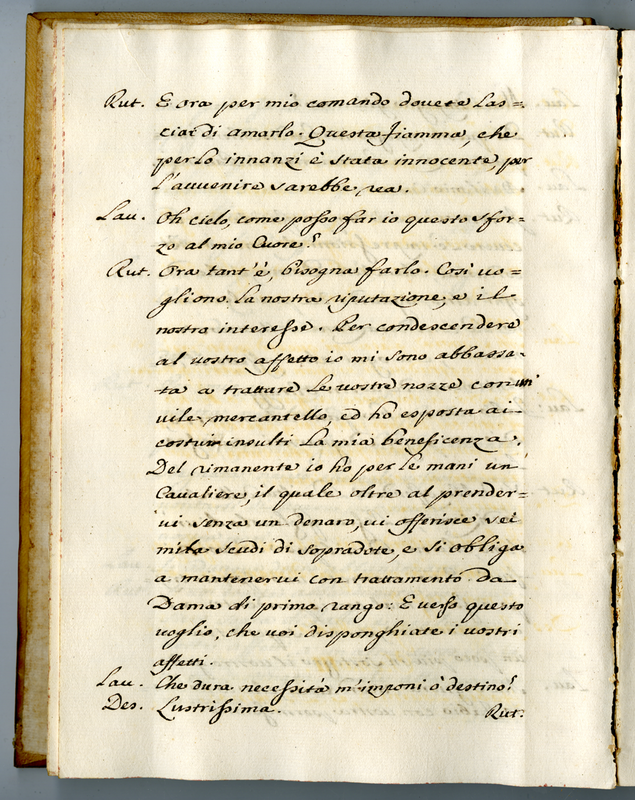 Rut. E ora per mio comando dovete las=
ciar di amarlo. Questa fiamma, che
per lo innanzi è stata innocente, per
l'avvenire sarebbe rea.
Lau. Oh cielo, come posso far io questo sfor=
zo al mio Cuore?
Rut. Ora tant'è, bisogna farlo. Così vo=
gliono la nostra riputazione, e il
nostro interesse. Per condescendere
al vostro affetto io mi sono abbassa-
ta a trattare le vostre nozze con un
vile mercantello, ed ho esposta ai
costui insulti la mia beneficenza.
Del rimanente io ho per le mani un
Cavaliere, il quale oltre al prender=
vi senza un denaro, vi offerisce sei
mila scudi di sopradote, e si obliga
a mantenervi con trattamento da
Dama di primo rango: E verso questo
voglio, che voi disponghiate i vostri
affetti.
Lau. Che dura necessità m'imponi ò destino?
Des. Lustrissima.
Rut.